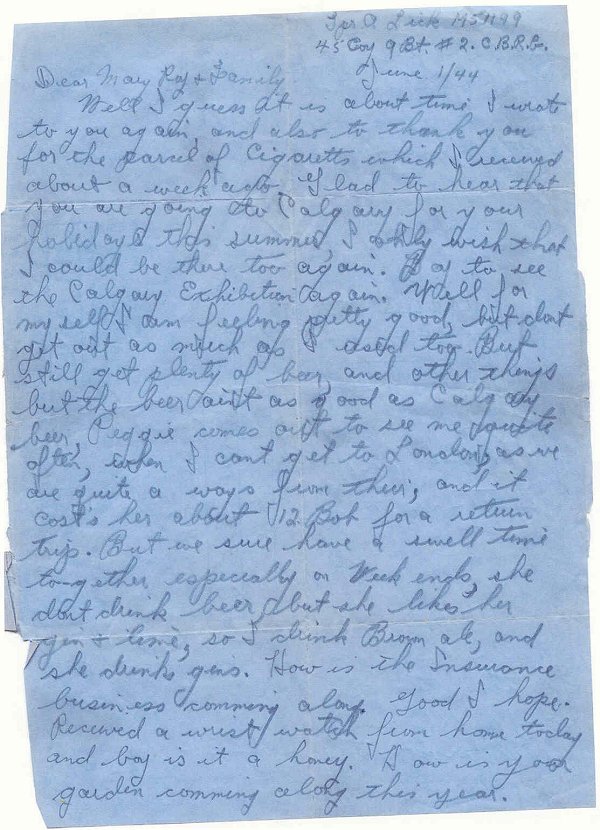 Tpr A Lick M51199
45 Coy 9 Bt. #2. C.B.R.G.
June 1/44
Dear Mary Roy + Family.
Well I guess it is about time I wrote
to you again, and also to thank you
for the parcel of Cigaretts which I received
about a week ago. Glad to hear that
you are going to Calgary for your
holidays this summer, I only wish that
I could be there too again. & to see
the Calgary Exhibition again. Well for
my self I am feeling pretty good, but dont
get out as much as I used too. But
still get plenty of beer, and other things
but the beer aint as good as Calgary
beer, Peggie comes out to see me quite
often, when I cant get to London, as we
are quite a ways from their, and it
costs her about 12 Bob for a return
trip. But we sure have a swell time
to-gether, especially on Week ends, she
dont drink beer, but she likes her
gin + lime, so I drink Brown ale, and
she drinks gins. How is the Insurance
business comming along. Good I hope.
Received a wrist watch from home today
and boy is it a honey. How is your
garden comming along this year.